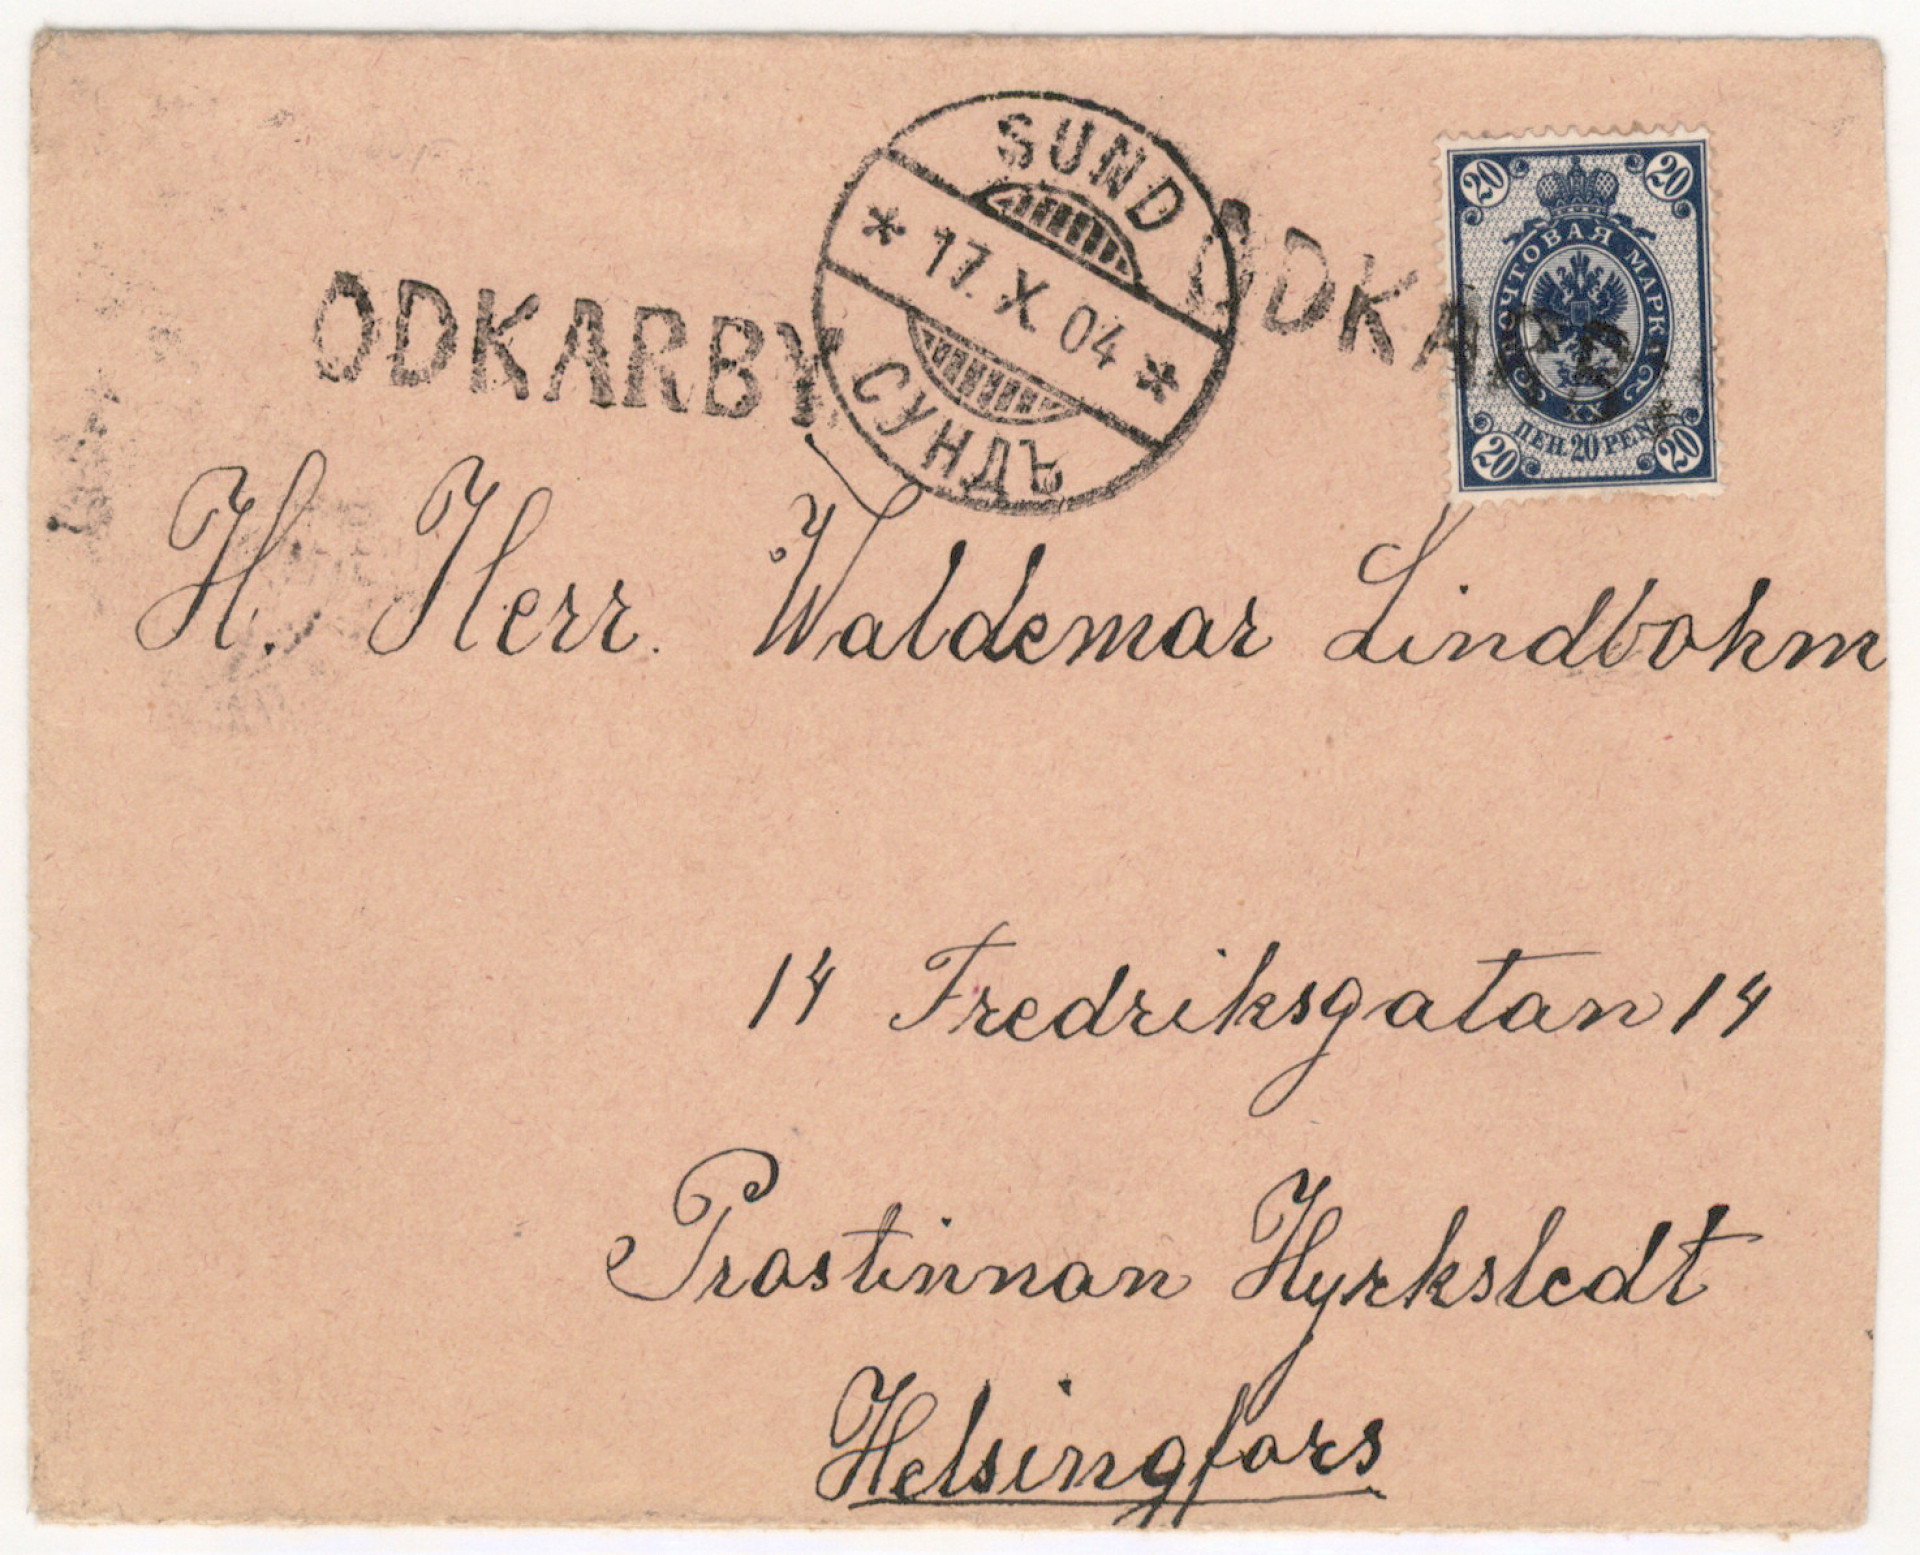 SUND
* 17.X.04 *
СУНДЪ
ODKARBY
ODKARB
20 20
ПОЧТОВАЯ МАРКА
XX
ПЕН. 20 PEN.
20 20
H. Herr. Waldemar Lindbohm
14 Fredriksgatan 14
Prostinnan Hyrkstedt
Helsingfors